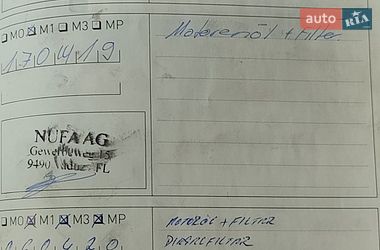 auto RIA
M0 M1 M3 MP
170419
Motorenöl + Filter
NUFA AG
Gewerbeweg 15
9490 Vaduz FL
M0 M1 M3 MP
MOTORÖL + FILTER
260420
DIESELFILTER